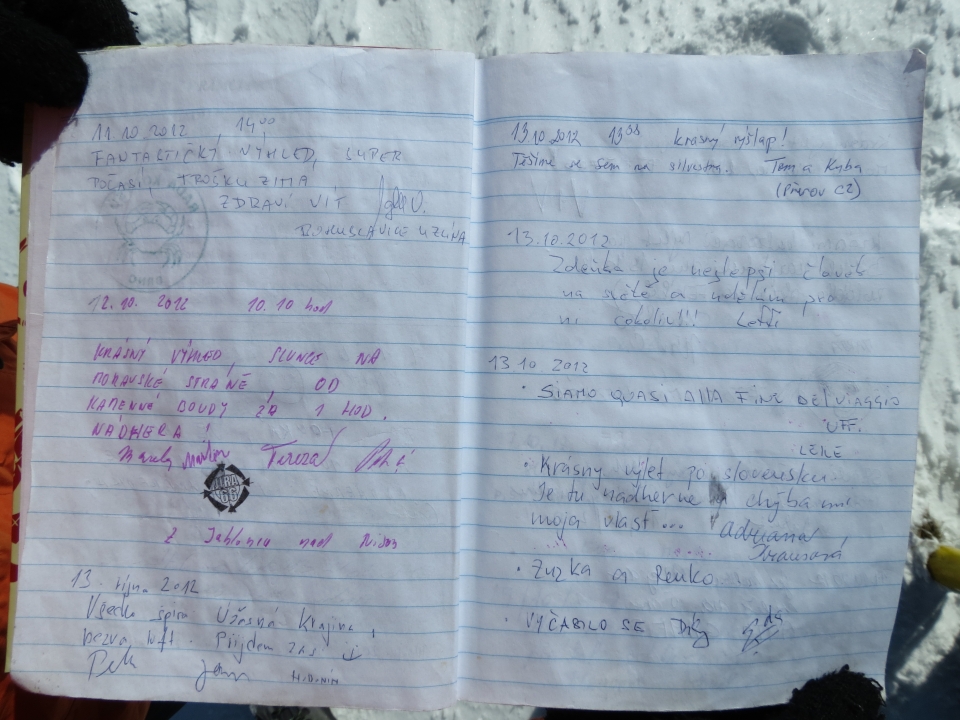 11.10.2012 14⁰⁰
FANTASTICKÝ VÝHLED, SUPER
POČASÍ TROŠKU ZIMA
ZDRAVÍ VÍT
BOHUSLAVICE U ZLÍNA
12.10. 2012 10.10 hod
KRÁSNÝ VÝHLED, SLUNCE NA
MORAVSKÉ STRANĚ, OD
KAMENNÉ BOUDY ZA 1 HOD.
NÁDHERA!
Tereza
Z Jablonce nad Nisou
13. října 2012
Všecko špica Úžasná Krajina,
bezva luft. Přijdem zas
Petr Jana HODONÍN
13.10.2012 13 krásný výšlap!
Těšíme se sem na silvestra. Tom a Kuba
(Přerov CZ)
13.10.2012
Zdeňka je nejlepší člověk
na světě a udělám pro
ni cokoliv!!!
13 10 2012
· SIAMO QUASI ALLA FINE DEL VIAGGIO
UFF.
· Krásny výlet po slovensku.
Je tu nádherne chýba mi
moja vlasť... Adriana
· Zuzka a Renko
· VYČASILO SE